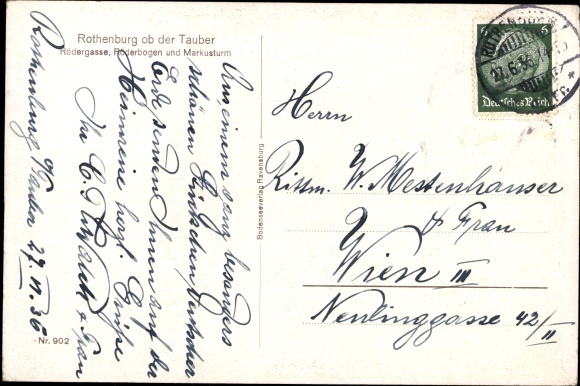 Rothenburg ob der Tauber
Rödergasse, Röderbogen und Markusturm
Aus einem ganz besonders
schönen Fleckchen deutscher
Erde senden Ihnen auf der
Heimreise herzl. Grüße
Ihr
u. Frau
Rothenburg o/Tauber 27. VI. 36
Nr. 902
Bodenseeverlag Ravensburg
27.6.36
6
Deutsches Reich
Herrn
Rittm. W. Mestenhauser
u. Frau
Wien III
Neulinggasse 42/II